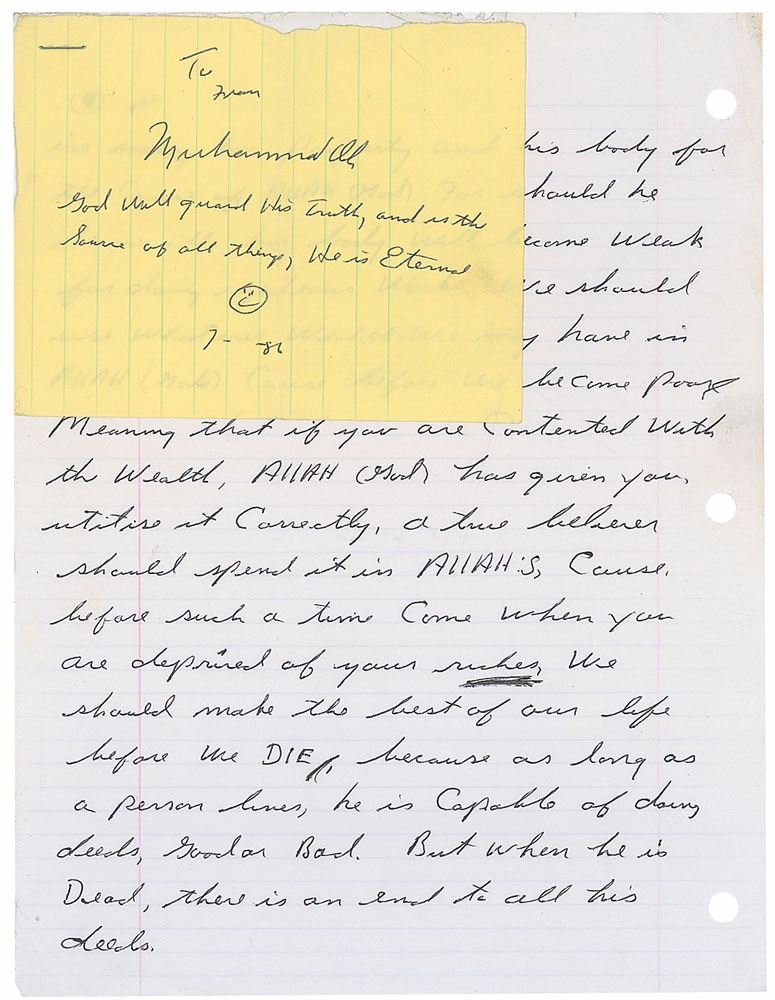 To
From
Muhammad Ali
God Will guard His Truth, and is the
Source of all things, He is Eternal
7- -86
his body for
should he
become Weak
We should
have in
become poor
Meaning that if you are Contented With
the Wealth, AllAH (God) has given you,
utitise it Correctly, a true believer
should spend it in AllAH'S, Cause.
before such a time Come when you
are deprived of your riches, We
should make the best of our life
before We DIE, because as long as
a person lives, he is Capable of doing
deeds, Good or Bad. But when he is
Dead, there is an end to all his
deeds.